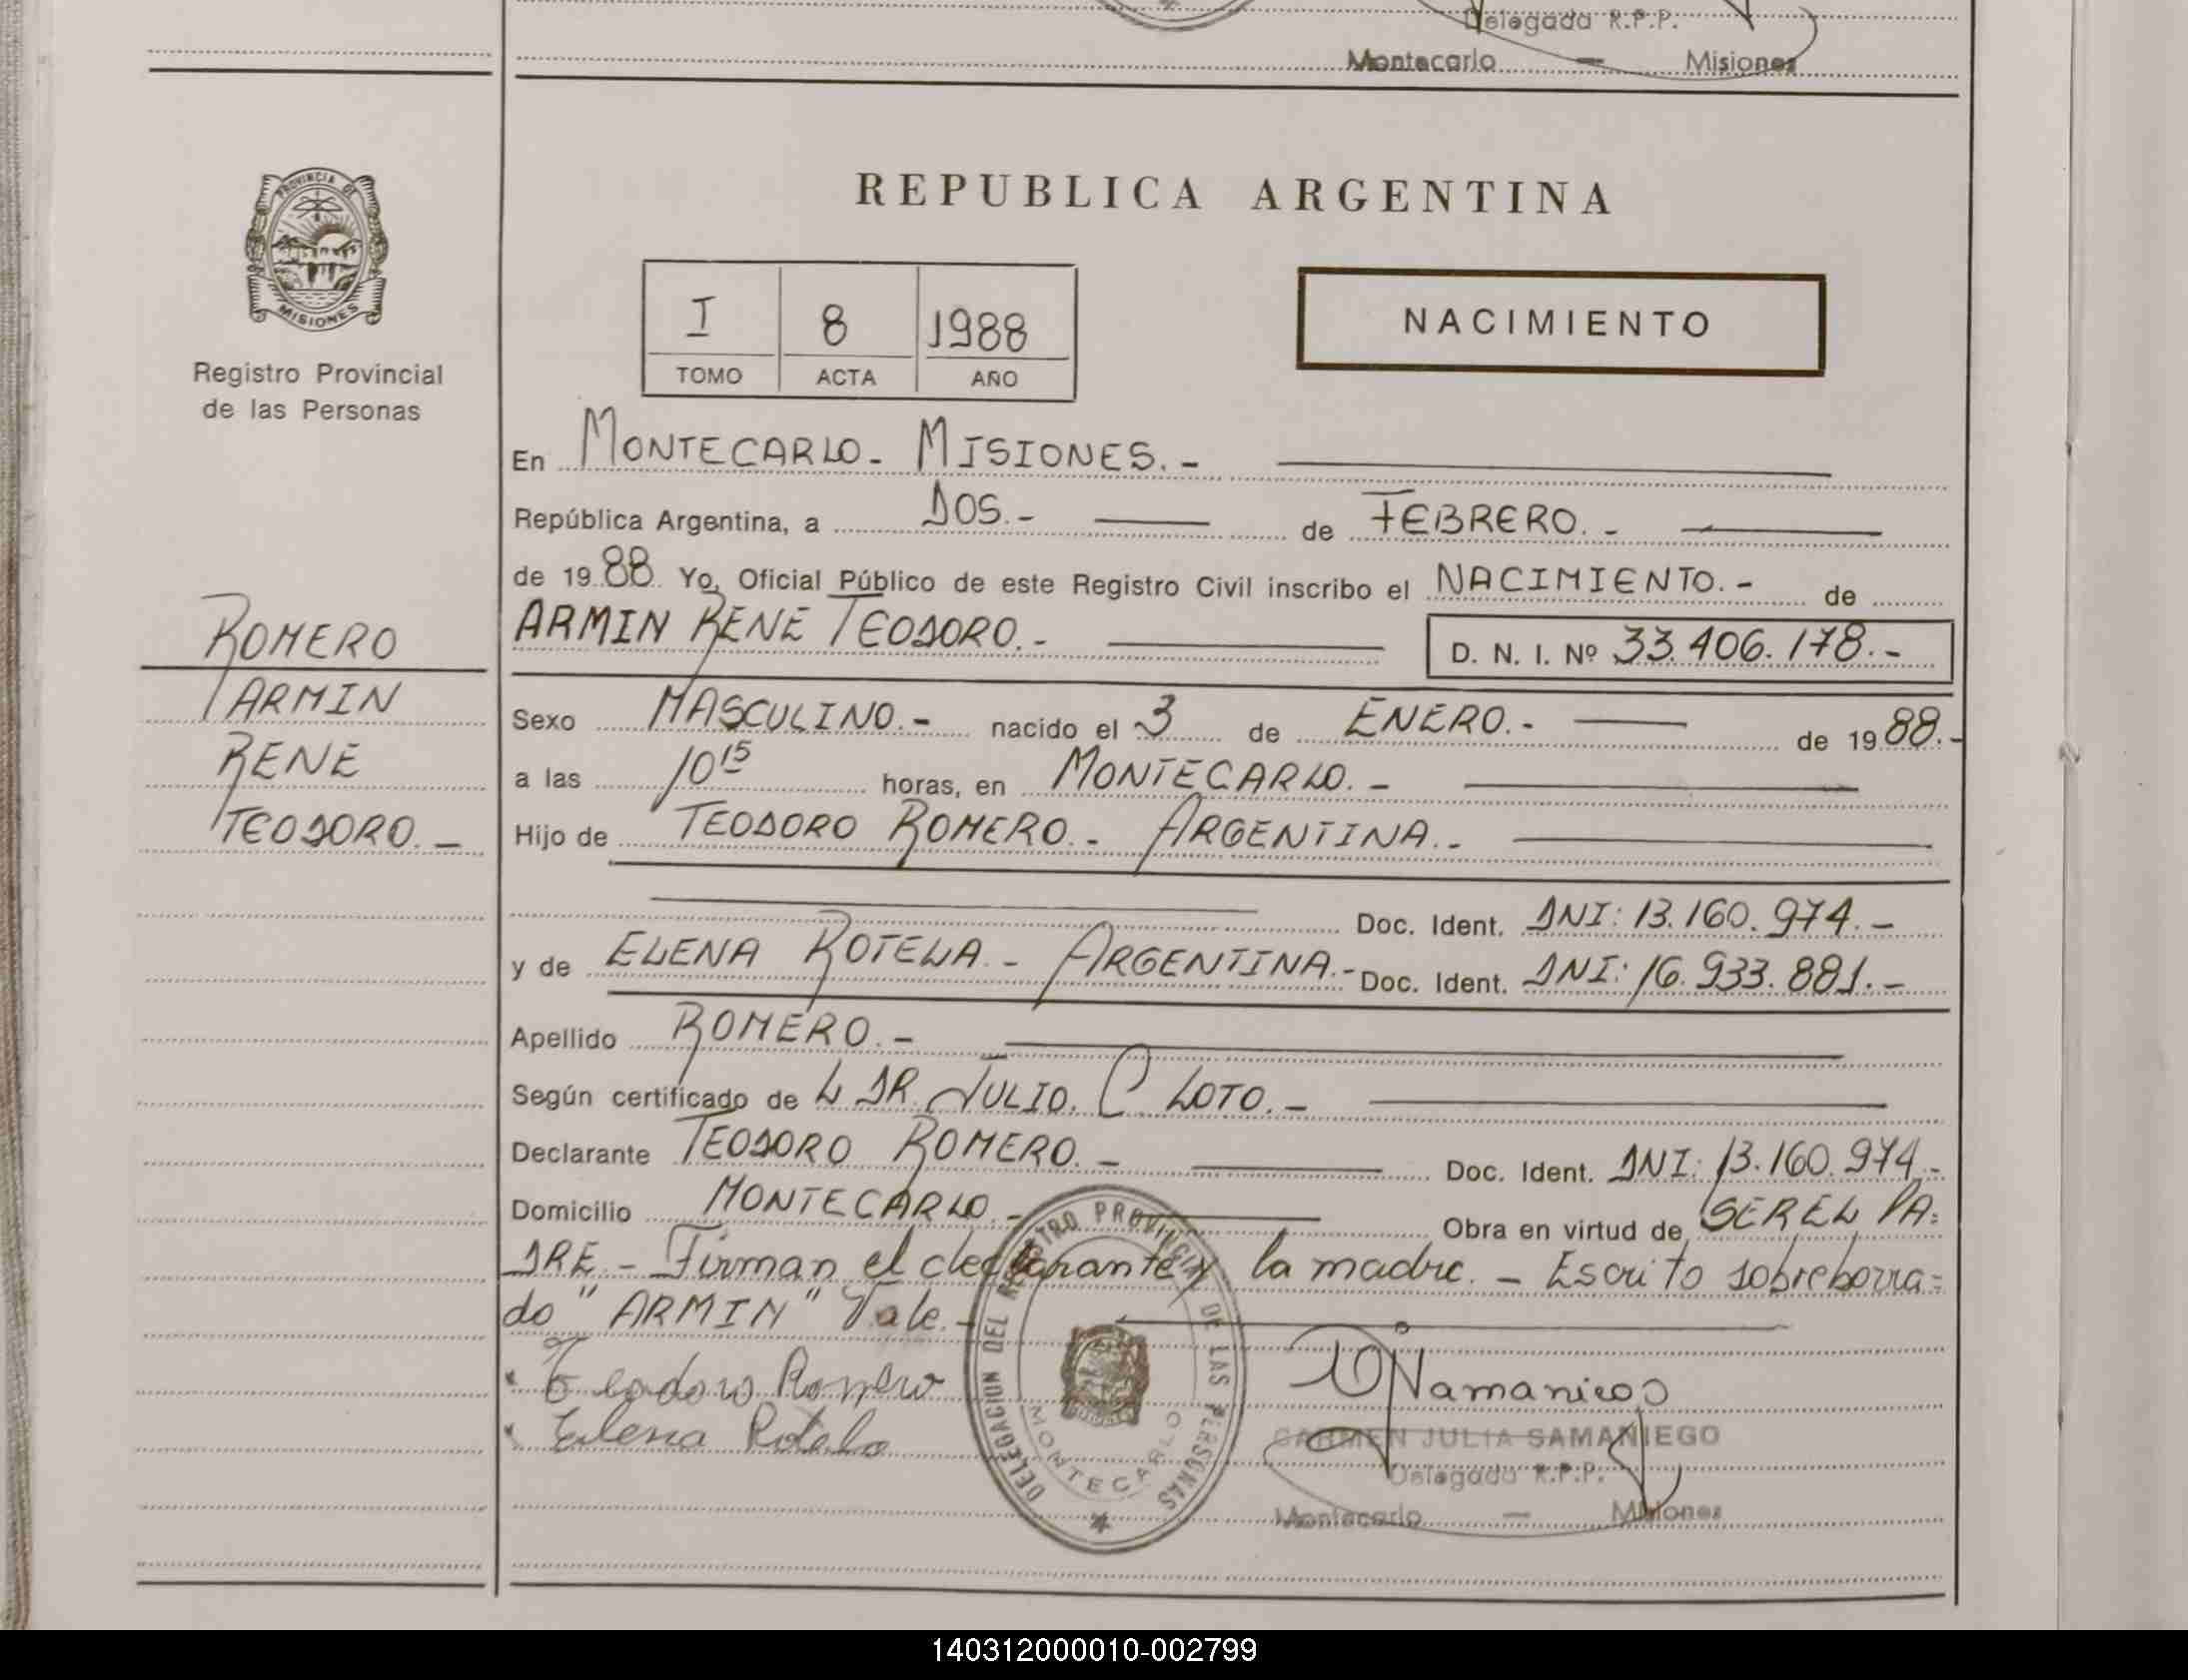 Delegada R.P.P.
Montecarlo — Misiones
PROVINCIA DE
MISIONES
Registro Provincial
de las Personas
REPUBLICA ARGENTINA
I 8 1988
TOMO ACTA AÑO
NACIMIENTO
En MONTECARLO - MISIONES.-
República Argentina, a DOS.- de FEBRERO.-
de 1988 Yo, Oficial Público de este Registro Civil inscribo el NACIMIENTO.- de
ARMIN RENE TEODORO.- D. N. I. Nº 33.406.178.-
ROMERO
ARMIN
RENE
TEODORO.-
Sexo MASCULINO.- nacido el 3 de ENERO.- de 1988.-
a las 10 15 horas, en MONTECARLO.-
Hijo de TEODORO ROMERO.- ARGENTINA.-
Doc. Ident. DNI: 13.160.974.-
y de ELENA ROTELA.- ARGENTINA.- Doc. Ident. DNI: 16.933.881.-
Apellido ROMERO.-
Según certificado de L DR. JULIO. C LOTO.-
Declarante TEODORO ROMERO.- Doc. Ident. DNI: 13.160.974.-
Domicilio MONTECARLO.- Obra en virtud de SER EL PA=
DRE.- Firman el declarante y la madre.- Escrito sobreborra=
do "ARMIN" Vale.-
Teodoro Romero
Elena Rotela
DELEGACION DEL REGISTRO PROVINCIAL DE LAS PERSONAS
MONTECARLO
CARMEN JULIA SAMANIEGO
Delegada R.P.P.
Montecarlo — Misiones
140312000010-002799